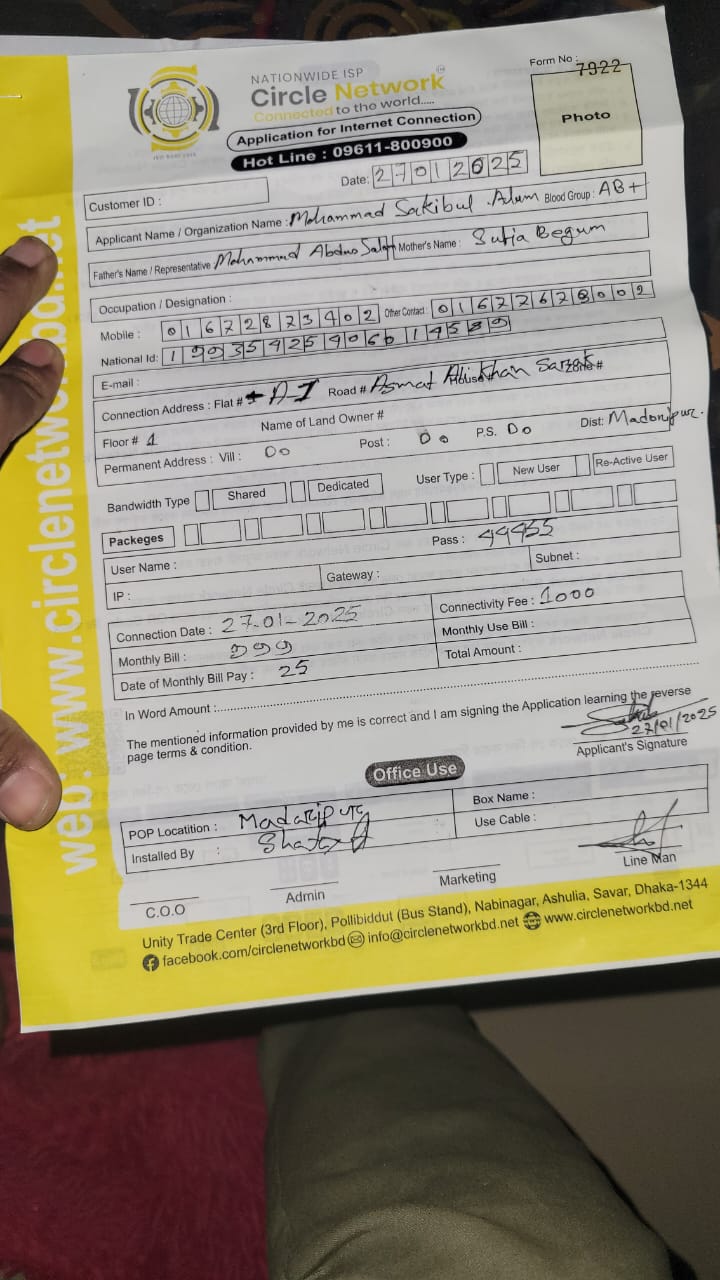 NATIONWIDE ISP
Circle Network
Connected to the world.....
Form No : 7922
Application for Internet Connection
Hot Line : 09611-800900
Photo
Date: 27012025
Customer ID :
Applicant Name / Organization Name : Mohammad Sakibul Alam Blood Group : AB+
Father's Name / Representative Mohammad Abdus Mother's Name : Sufia Begum
Occupation / Designation :
Mobile : 01672873402 Other Contact : 01677678002
National Id:
E-mail :
Connection Address : Flat # A-1 Road # Asmat Ali Khan
Floor # 1 Name of Land Owner #
Permanent Address : Vill : Do Post : Do P.S. Do Dist: Madaripur.
Bandwidth Type Shared Dedicated User Type : New User Re-Active User
Packeges
User Name : Pass : 44455
IP : Gateway : Subnet :
Connection Date : 27-01-2025 Connectivity Fee : 1000
Monthly Bill : Monthly Use Bill :
Date of Monthly Bill Pay : 25 Total Amount :
In Word Amount :
The mentioned information provided by me is correct and I am signing the Application learning the reverse
page terms & condition.
27/01/2025
Applicant's Signature
Office Use
POP Locatition : Madaripur Box Name :
Installed By : Use Cable :
C.O.O Admin Marketing Line Man
Unity Trade Center (3rd Floor), Pollibiddut (Bus Stand), Nabinagar, Ashulia, Savar, Dhaka-1344
facebook.com/circlenetworkbd info@circlenetworkbd.net www.circlenetworkbd.net
web: www.circlenetworkbd.net